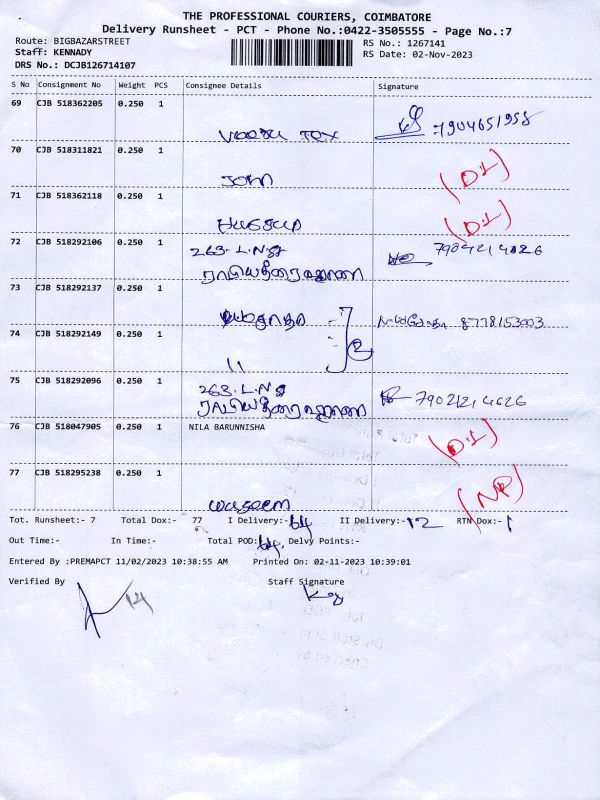 THE PROFESSIONAL COURIERS, COIMBATORE
Delivery Runsheet - PCT - Phone No.:0422-3505555 - Page No.:7
Route: BIGBAZARSTREET
RS No.: 1267141
Staff: KENNADY
RS Date: 02-Nov-2023
DRS No.: DCJB126714107
S No Consignment No Weight PCS Consignee Details Signature
69 CJB 518362205 0.250 1
TEX 7904651958
70 CJB 518311821 0.250 1
John (D1)
71 CJB 518362118 0.250 1
(D1)
72 CJB 518292106 0.250 1 263. L.N
7902124626
73 CJB 518292137 0.250 1
8778153003
74 CJB 518292149 0.250 1
11 2
75 CJB 518292096 0.250 1 263. L.N
7902124626
76 CJB 518047905 0.250 1 NILA BARUNNISHA (D1)
77 CJB 518295238 0.250 1
waseem (NP)
Tot. Runsheet:- 7 Total Dox:- 77 I Delivery:- 64 II Delivery:- 12 RTN Dox:- 1
Out Time:- In Time:- Total POD: 64 Delvy Points:-
Entered By :PREMAPCT 11/02/2023 10:38:55 AM Printed On: 02-11-2023 10:39:01
Verified By Staff Signature